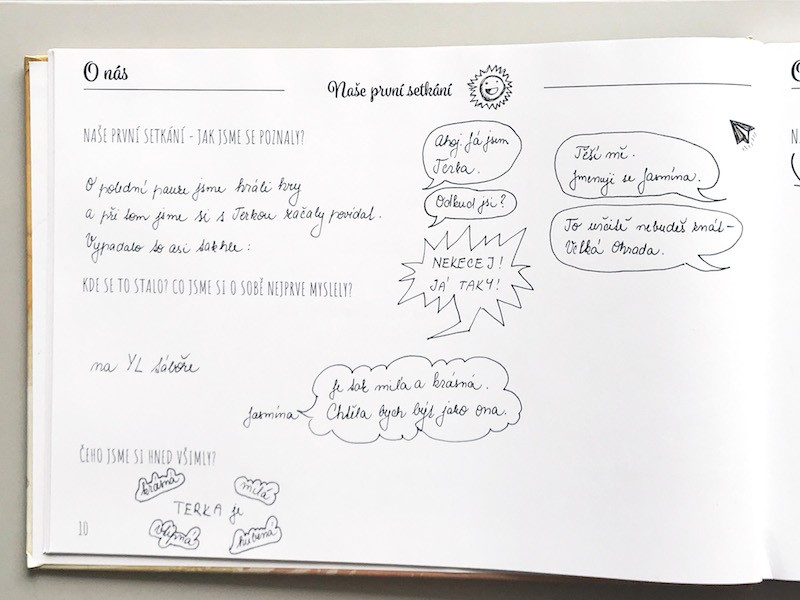 O nás
Naše první setkání
NAŠE PRVNÍ SETKÁNÍ - JAK JSME SE POZNALY?
O polední pauze jsme hráli hry
a při tom jsme si s Terkou začaly povídat.
Vypadalo to asi takhle:
Ahoj. Já jsem
Terka.
Těší mě.
Jmenuji se Jasmína.
Odkud jsi?
To určitě nebudeš znát –
Velká Ohrada.
NEKECEJ!
JÁ TAKY!
KDE SE TO STALO? CO JSME SI O SOBĚ NEJPRVE MYSLELY?
na YL táboře
Jasmína
Je tak milá a krásná.
Chtěla bych být jako ona.
ČEHO JSME SI HNED VŠIMLY?
krásná
milá
TERKA je
vtipná
hubená
10